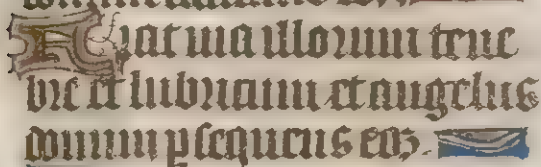 Fiat uia illorum tene
bre et lubricum et angelus
domini psequens eos.